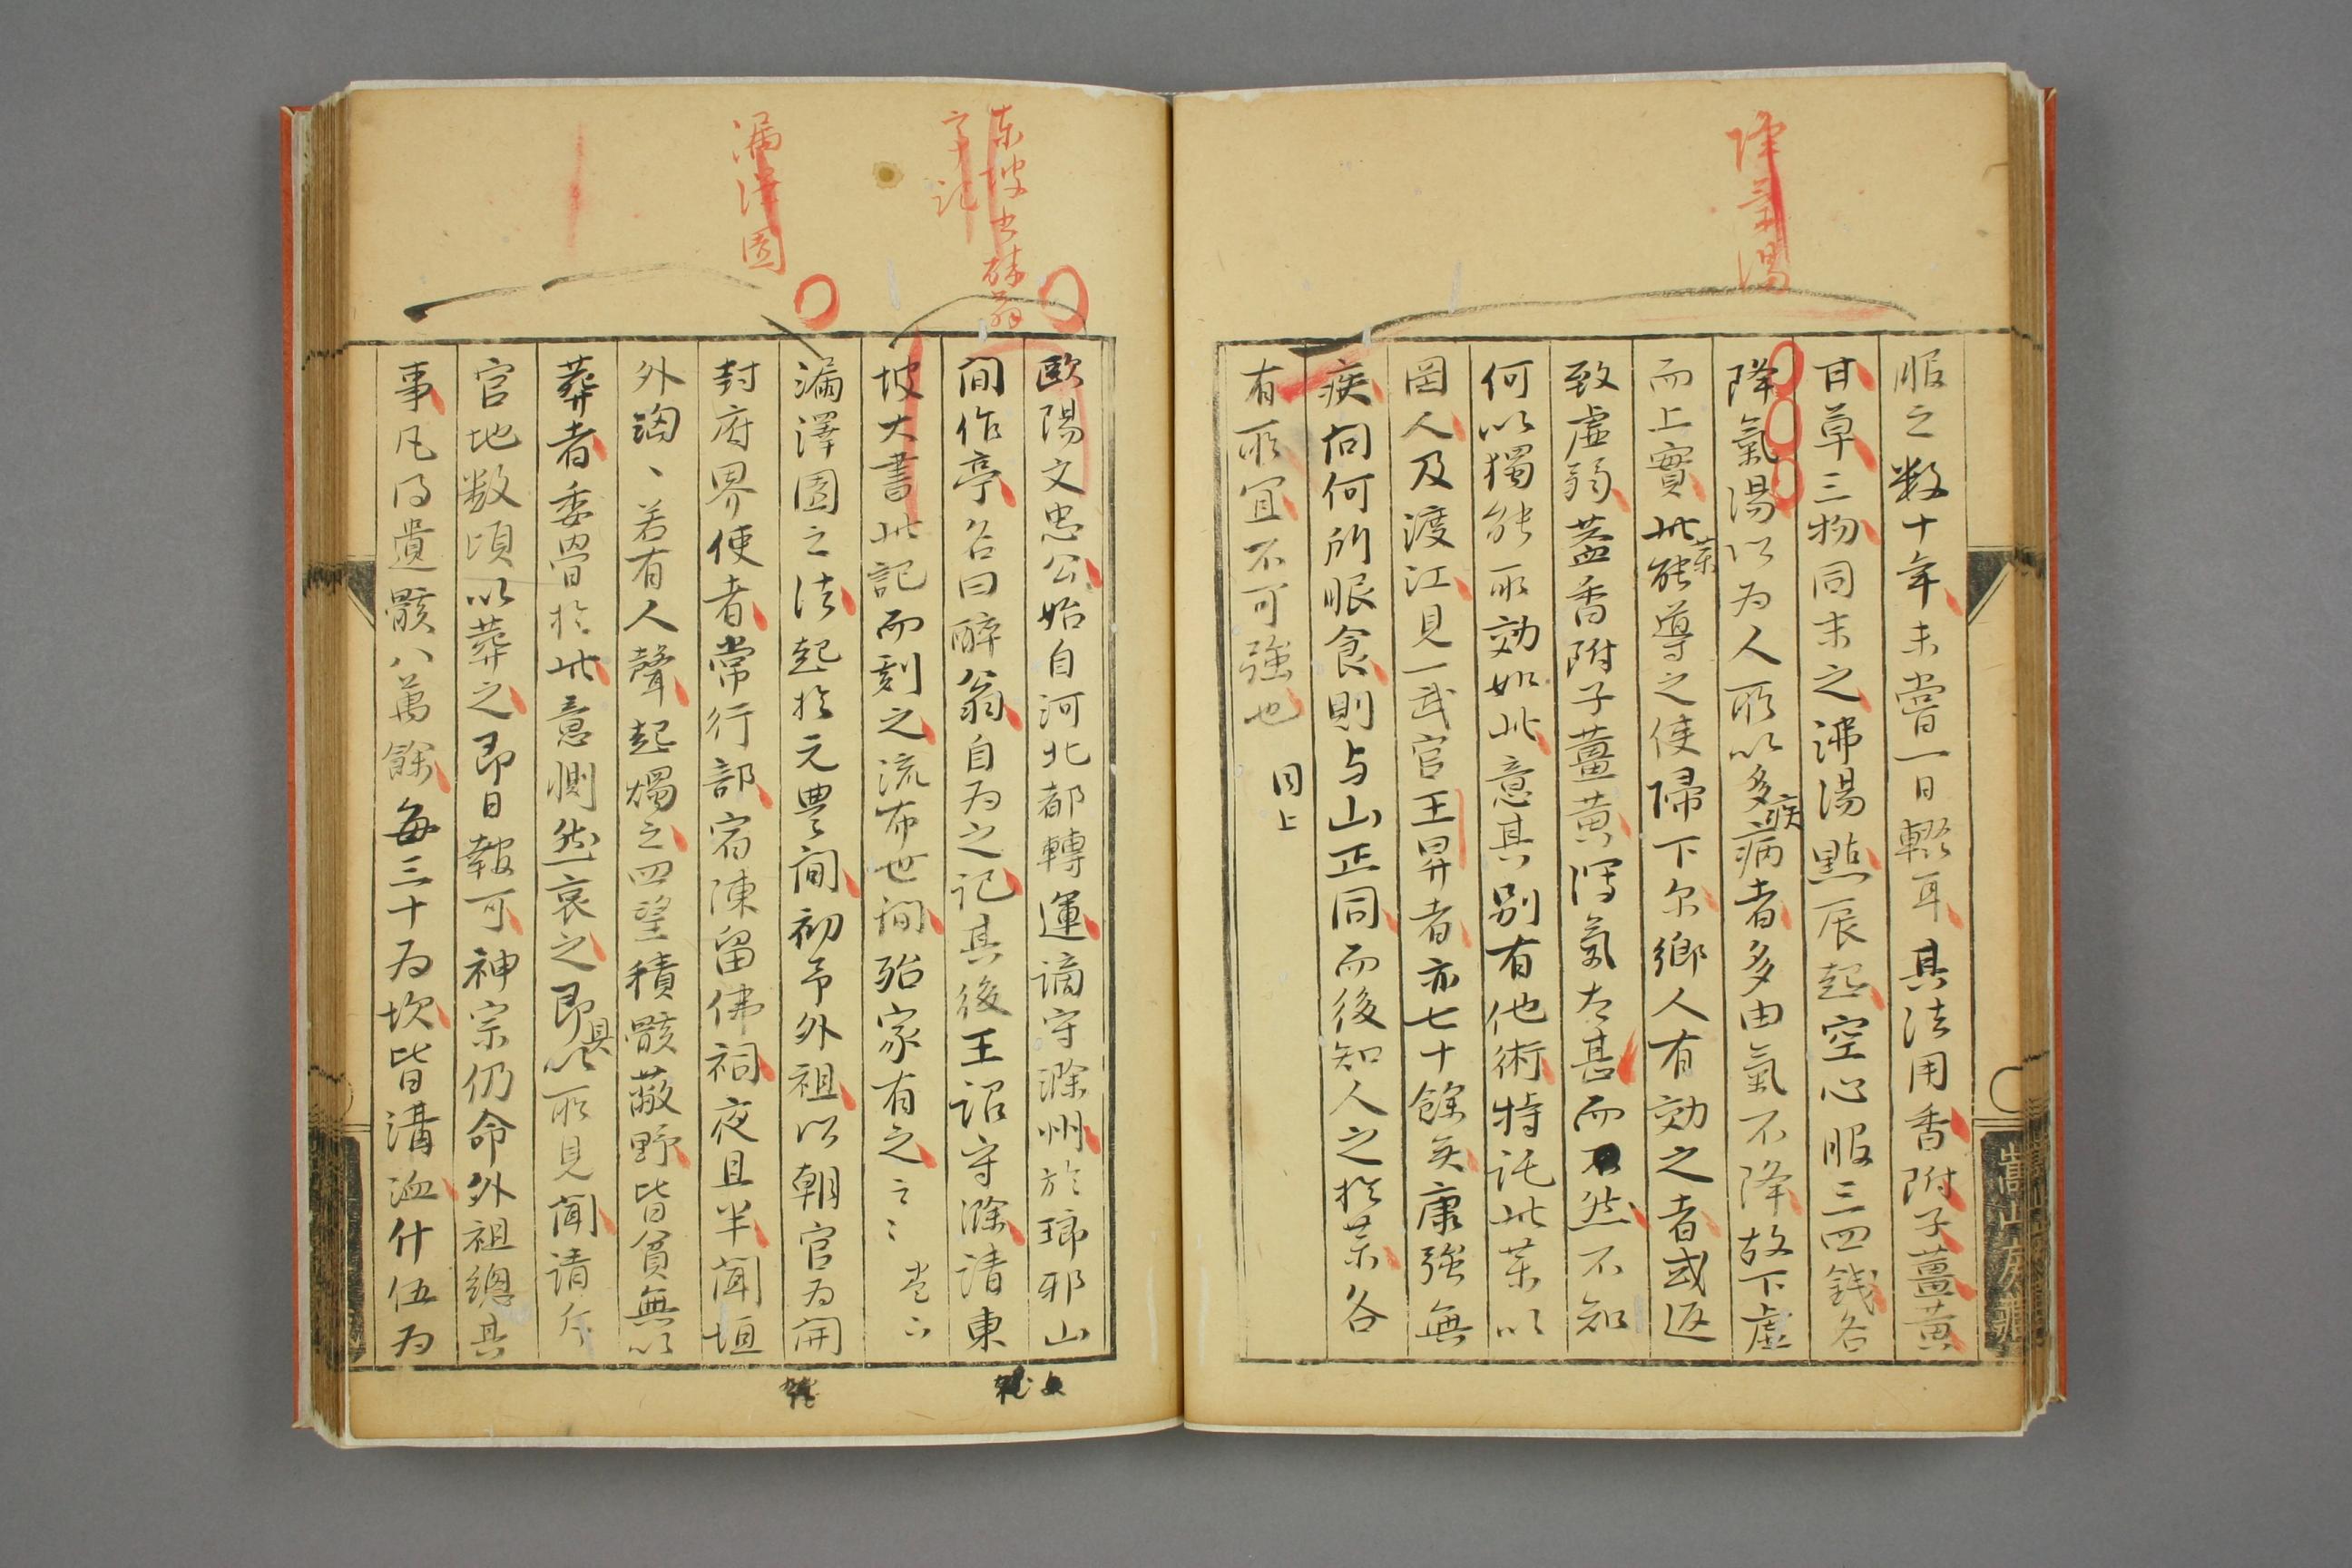 降氣湯
服之数十年未嘗一日輟耳其法用香附子薑黃
甘草三物同末之沸湯點晨起空心服三四錢名
降氣湯以为人所以多疾病者多由氣不降故下虛
而上實此藥能導之使歸下尔鄉人有効之者或返
致虛弱盖香附子薑黄瀉氣太甚而不然不知
何以獨能取効如此意其别有他術特託此藥以
罔人及渡江見一武官王昇者亦七十餘矣康強無
疾问何所服食則与山正同而後知人之於藥各
有所宜不可強也 同上
嵩山房雜
东坡书醉翁
亭记
漏泽園
歐陽文忠公始自河北都轉運謫守滁州於瑯邪山
间作亭名曰醉翁自为之记其後王诏守滁请東
坡大書此記而刻之流布世间殆家有之
漏澤園之法起於元豊间初予外祖以朝官为開
封府界使者常行部宿陳留佛祠夜且半闻垣
外洶、若有人聲起燭之四望積骸蔽野皆貧無以
葬者委骨於此意惻然哀之即具以所見闻请斥
官地数頃以葬之即日報可神宗仍命外祖總其
事凡得遺骸八萬餘每三十为坎皆溝洫什伍为